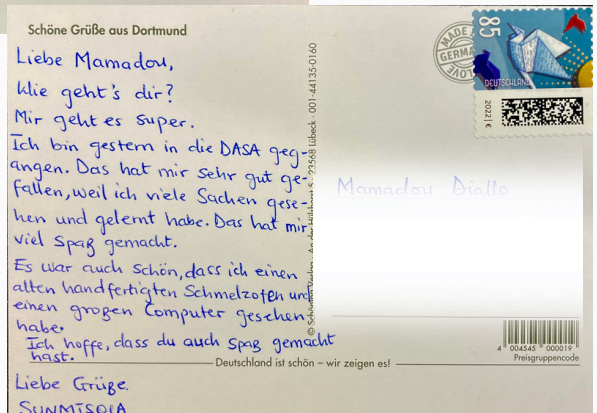 Schöne Grüße aus Dortmund
Liebe Mamadou,
Wie geht's dir?
Mir geht es super.
Ich bin gestern in die DASA geg-
angen. Das hat mir sehr gut ge-
fallen, weil ich viele Sachen gese-
hen und gelernt habe. Das hat mir
viel Spaß gemacht.
Es war auch schön, dass ich einen
alten handfertigten Schmelzofen und
einen großen Computer gesehen
habe.
Ich hoffe, dass du auch Spaß gemacht
hast.
Liebe Grüße.
SUNMISOLA
23568 Lübeck · 001-44135-0160
MADE IN
GERMANY
LOVE
85
DEUTSCHLAND
2022 | €
Mamadou Diallo
4 004545 000019
Preisgruppencode
Deutschland ist schön – wir zeigen es!